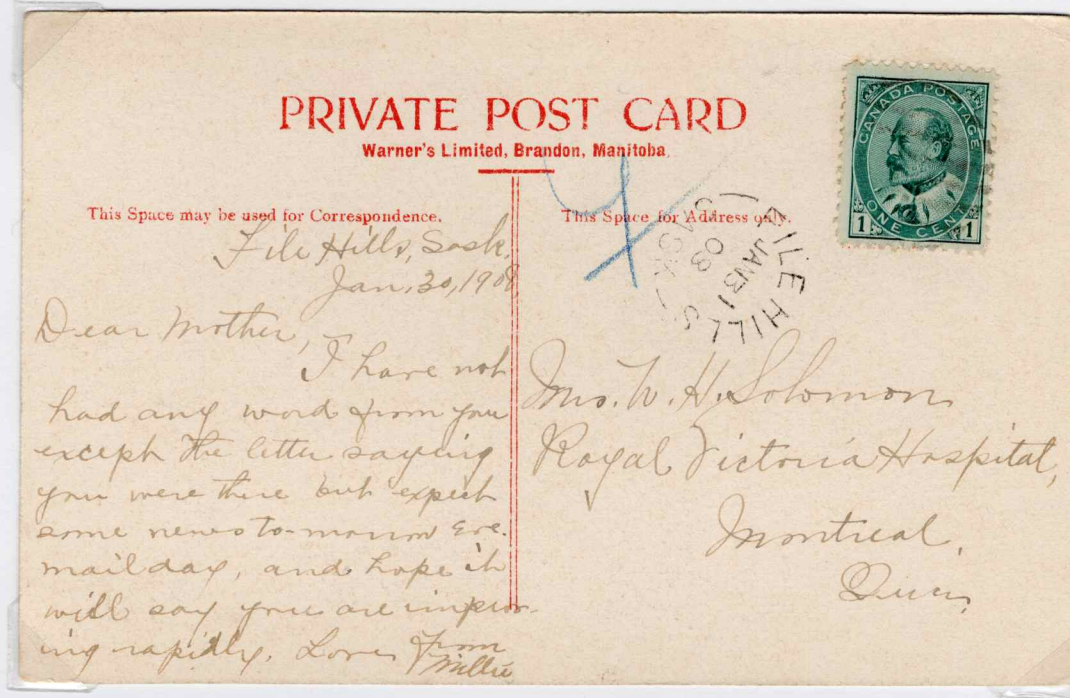 PRIVATE POST CARD
Warner's Limited, Brandon, Manitoba.
This Space may be used for Correspondence.
File Hills, Sask.
Jan. 30, 1908
Dear Mother,
I have not
had any word from you
except the letter saying
you were there but expect
some news to-morrow eve.
mail day, and hope it
will say you are improv-
ing rapidly. Love from
Millie
This Space for Address only.
CANADA POSTAGE
1 ONE CENT 1
FILE HILLS
SASK
JAN 31
08
Mrs. W. H. Solomon
Royal Victoria Hospital,
Montreal,
Que.